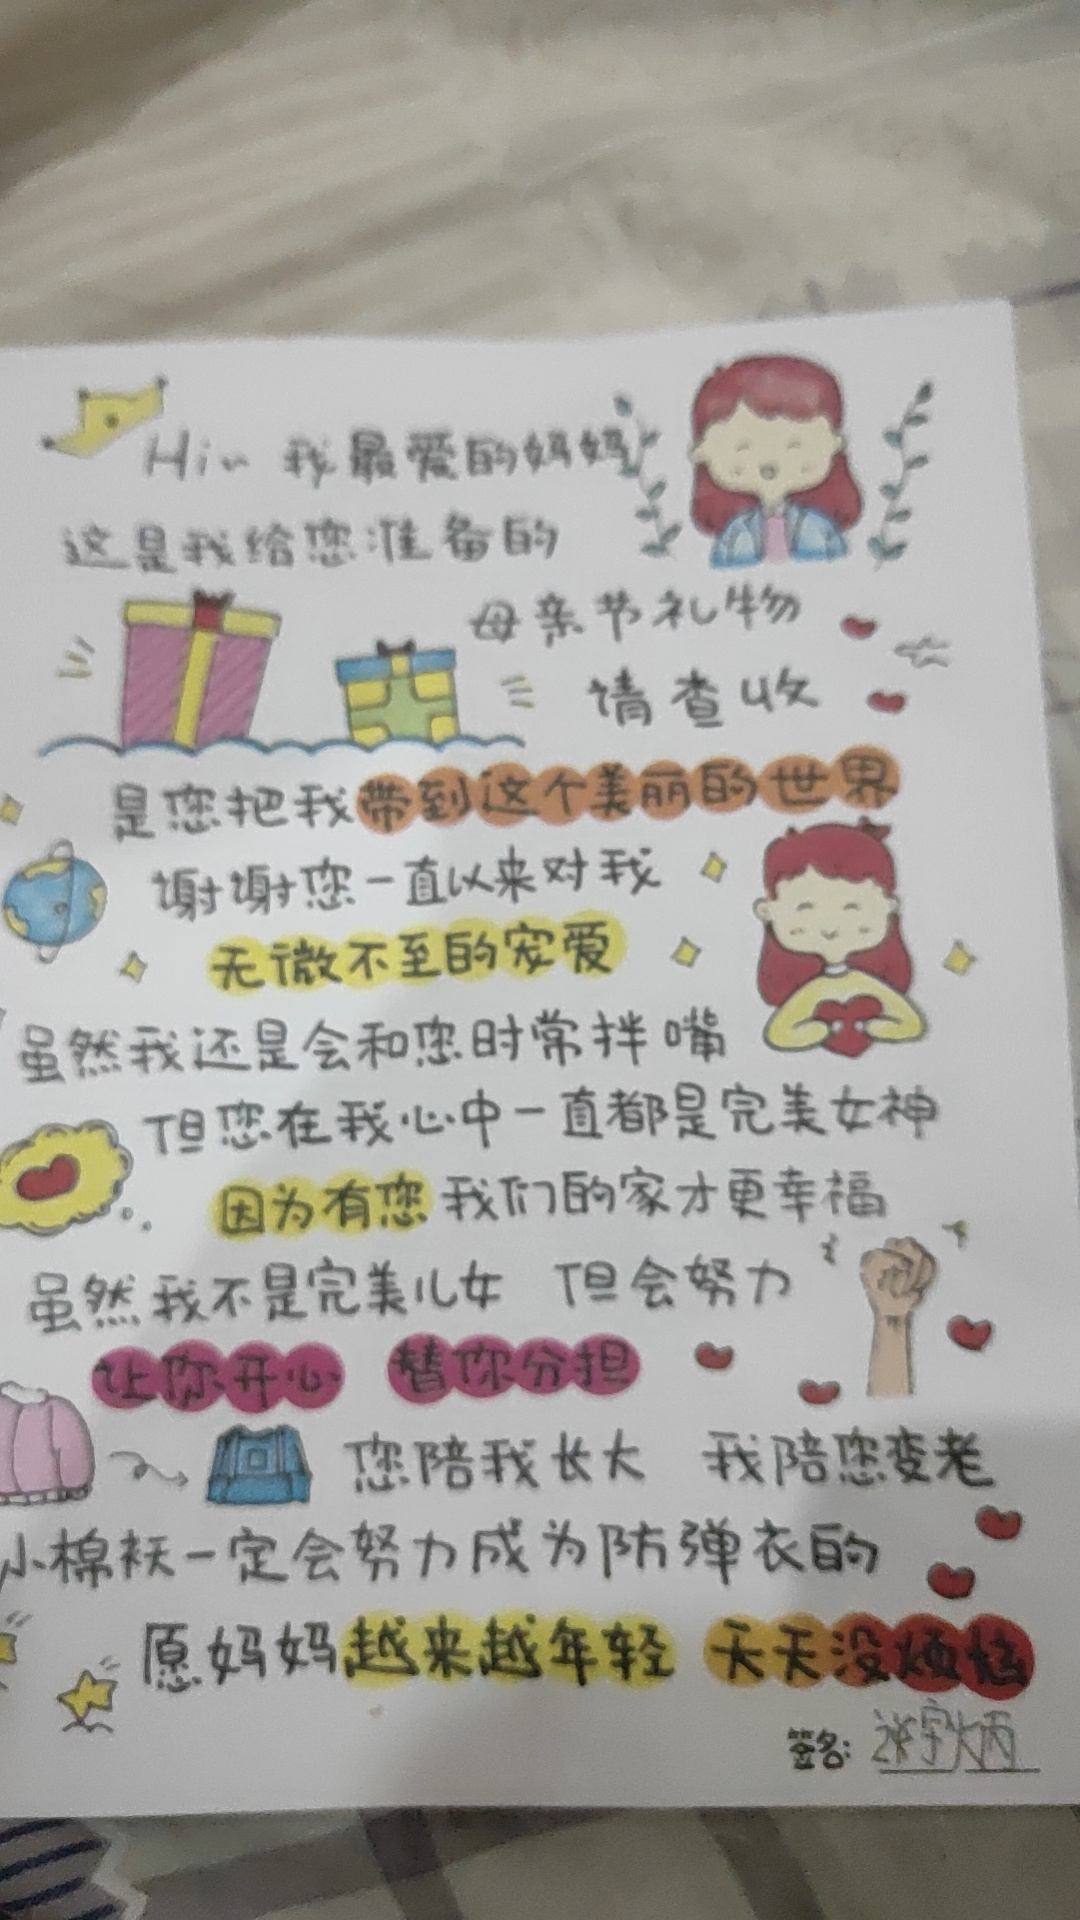 Hi~ 我最爱的妈妈
这是我给您准备的
母亲节礼物
请查收
是您把我带到这个美丽的世界
谢谢您一直以来对我
无微不至的宠爱
虽然我还是会和您时常拌嘴
但您在我心中一直都是完美女神
因为有您我们的家才更幸福
虽然我不是完美儿女 但会努力
让你开心 替你分担
您陪我长大 我陪您变老
小棉袄一定会努力成为防弹衣的
愿妈妈越来越年轻 天天没烦恼
签名: